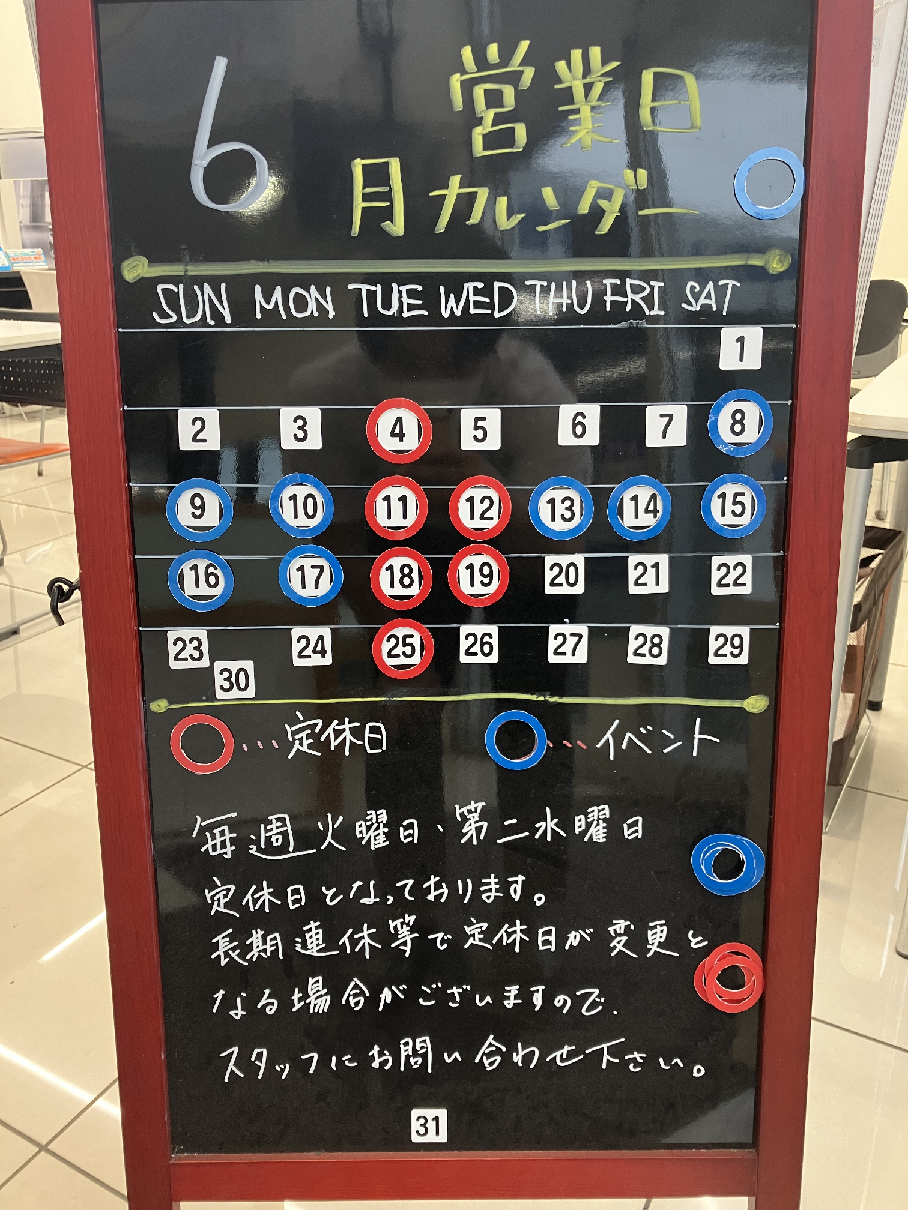 6
営業日
月カレンダー
SUN MON TUE WED THU FRI SAT
1
2 3 4 5 6 7 8
9 10 11 12 13 14 15
16 17 18 19 20 21 22
23 24 25 26 27 28 29
30
…定休日 …イベント
毎週火曜日、第二水曜日
定休日となっております。
長期連休等で定休日が変更と
なる場合がございますので、
スタッフにお問い合わせ下さい。
31